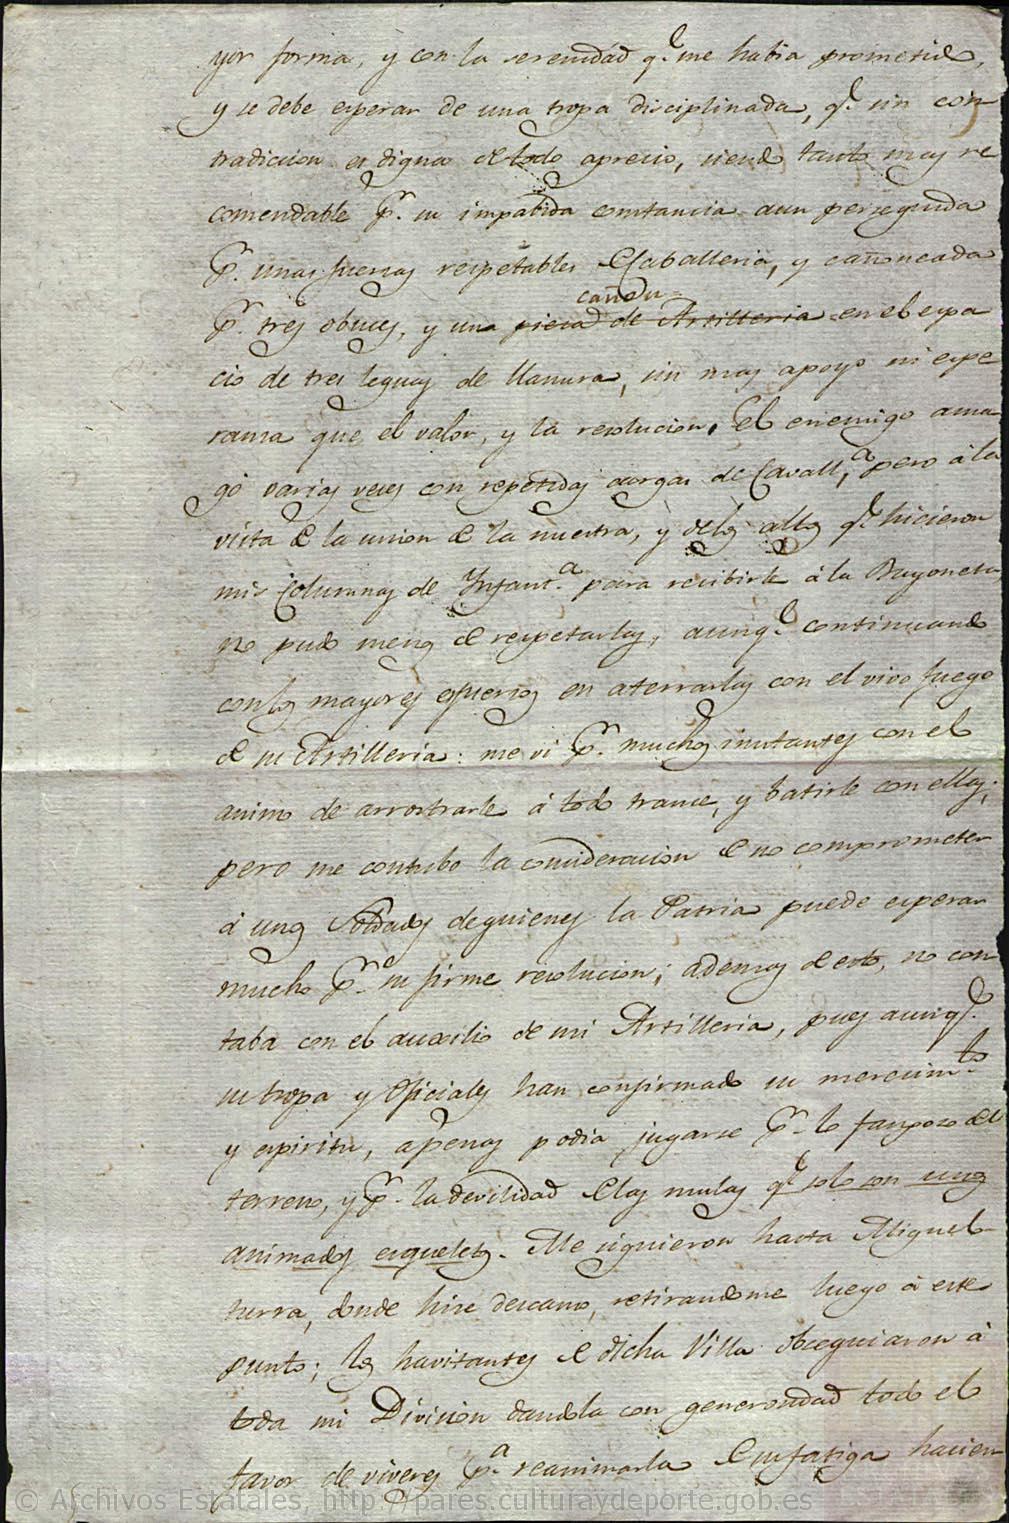 yor forma, y con la serenidad q.e me habia prometido,
y se debe esperar de una tropa disciplinada, q.e sin con
tradicion es digna de todo aprecio, siendo tanto mas re
comendable p.r su impabida constancia aun perseguida
p.r unas fuerzas respetables de Caballeria, y cañoneada
cañon
p.r tres obuces, y una pieza de Artilleria en el espa
cio de tres leguas de llanura, sin mas apoyo ni espe
ranza que el valor, y la resolucion. El enemigo ama
gó varias veces con repetidas cargas de Cavall.a, pero á la
vista de la union de la nuestra, y de los altos q.e hicieron
mis Columnas de Infant.a para recibirle á la Bayoneta,
no pudo menos de respetarlas, aunq.e continuando
con los mayores esfuerzos en aterrarlas con el vivo fuego
de su Artilleria: me vi p.r muchos instantes con el
animo de arrostrarle á todo trance, y batirle con ellas;
pero me contubo la consideracion de no comprometer
á unos Soldados de quienes la Patria puede esperar
mucho p.r su firme resolucion; ademas de esto, no con
taba con el auxilio de mi Artilleria, pues aunq.e
su tropa y Oficiales han confirmado su merecim.to
y espiritu, apenas podia jugarse p.r lo fangoso del
terreno, y p.r la devilidad de las mulas q.e solo son unos
animados esqueletos. Me siguieron hasta Miguel-
turra, donde hize descanso, retirandome luego á este
punto; los havitantes de dicha Villa obcequiaron á
toda mi Division dandola con generosidad todo el
favor de viveres p.a reanimarla de su fatiga hacien
© Archivos Estatales, http://pares.culturaydeporte.gob.es